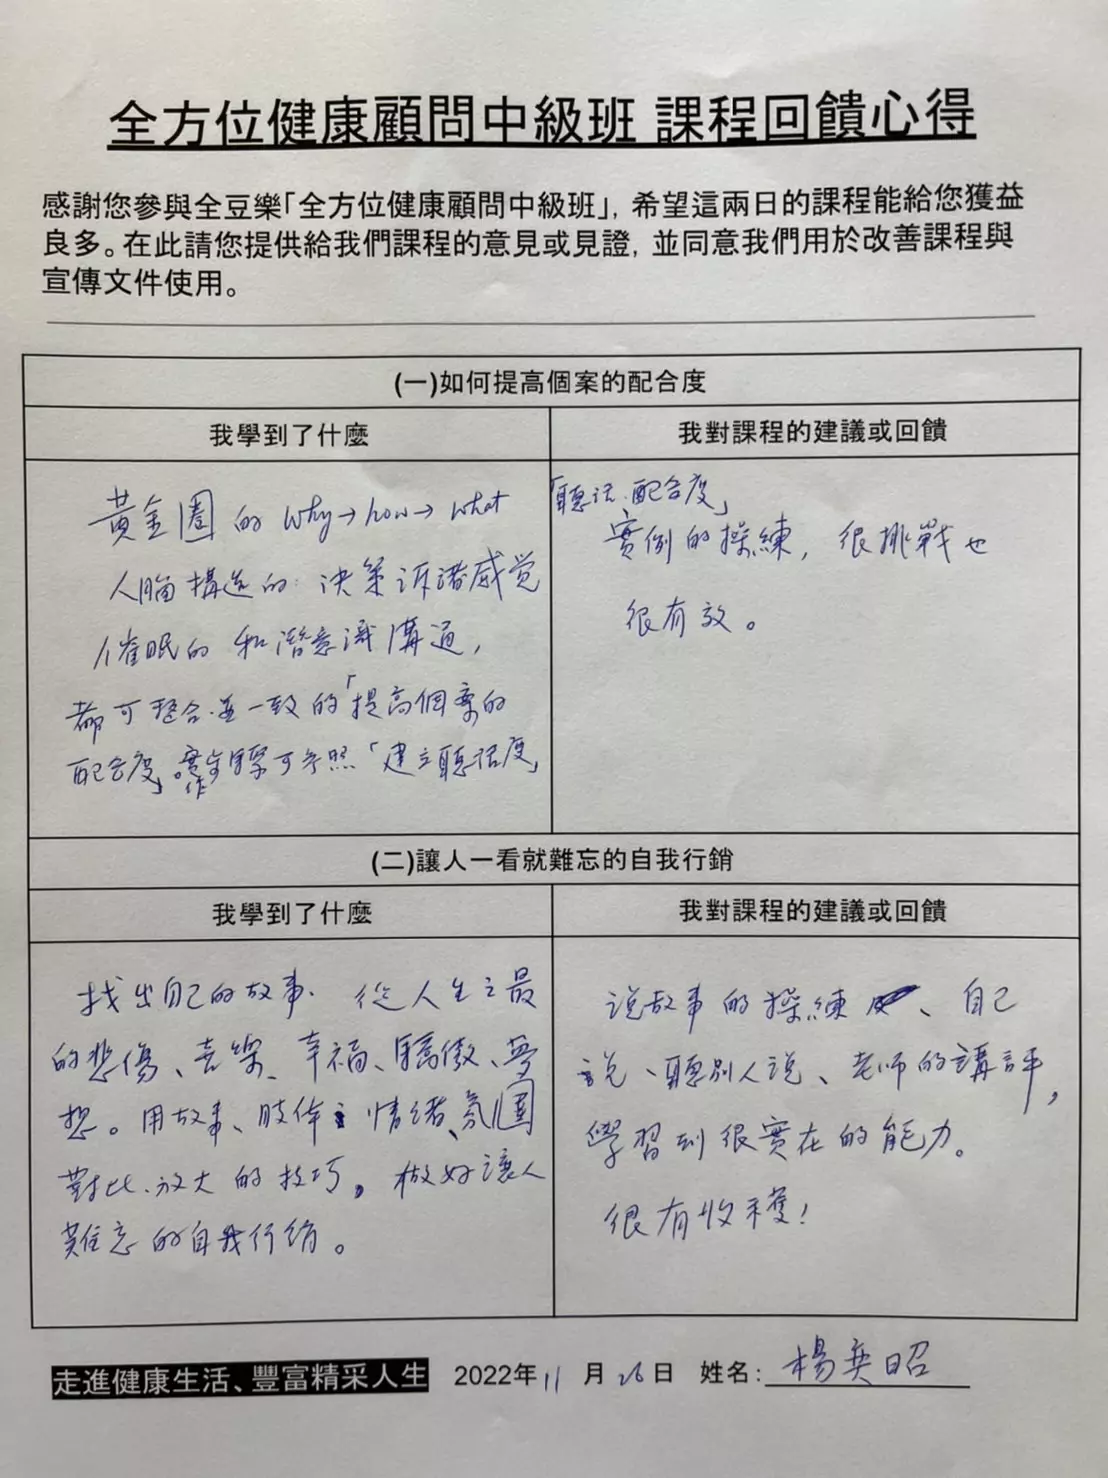 全方位健康顧問中級班 課程回饋心得
感謝您參與全豆樂「全方位健康顧問中級班」, 希望這兩日的課程能給您獲益
良多。在此請您提供給我們課程的意見或見證, 並同意我們用於改善課程與
宣傳文件使用。
(一)如何提高個案的配合度
我學到了什麼
黃金圈 的 why→how→what
人腦構造的: 決策訴諸感觉
催眠的 和潛意識溝通,
都可整合並一致的「提高個案的
配合度」。實作步驟可参照「建立聽话度」
我對課程的建議或回饋
「聽话.配合度」
實例的操練, 很挑戰也
很有效。
(二)讓人一看就難忘的自我行銷
我學到了什麼
找出自己的故事. 從人生之最
的悲傷、喜樂、幸福、驕傲、夢
想。用故事、肢体、情绪、氛圍
對比.放大的技巧。做好讓人
難忘的自我行銷。
我對課程的建議或回饋
说故事的操練、自己
说、聽别人说、老师的講評,
學習到很實在的能力。
很有收穫!
走進健康生活、豐富精采人生 2022年11月26日 姓名:楊奕昭